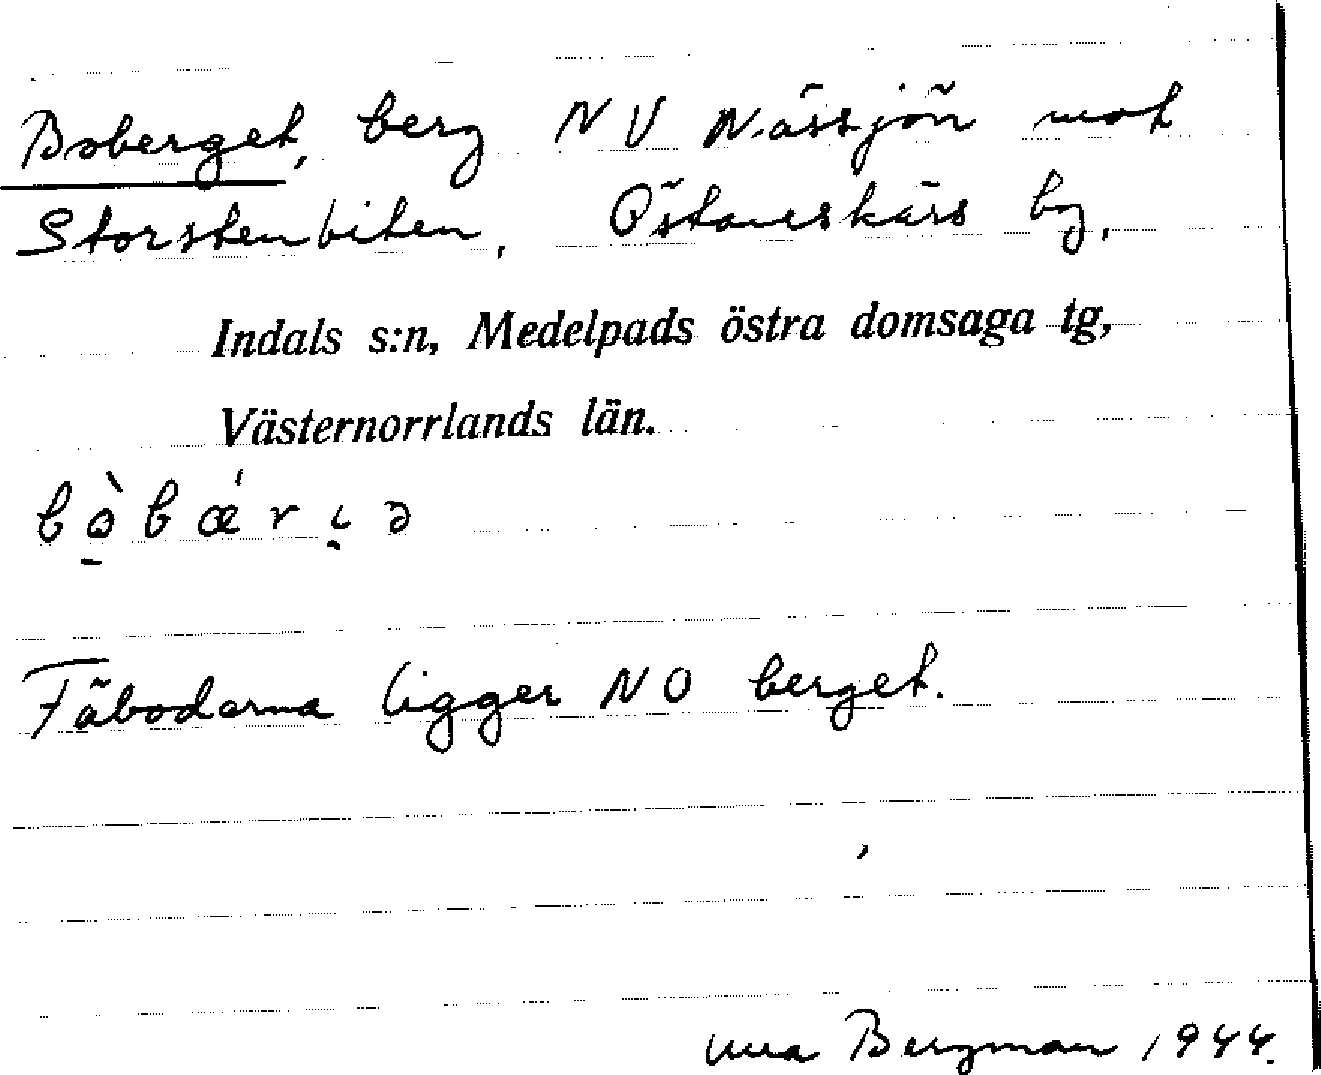 Boberget, berg NV Nässjön mot
Storstenbiten, Östanskärs by,
Indals s:n, Medelpads östra domsaga tg,
Västernorrlands län.
bò̠bǽrı̣ə
Fäbodarna ligger NO berget.
Bergman 1944.